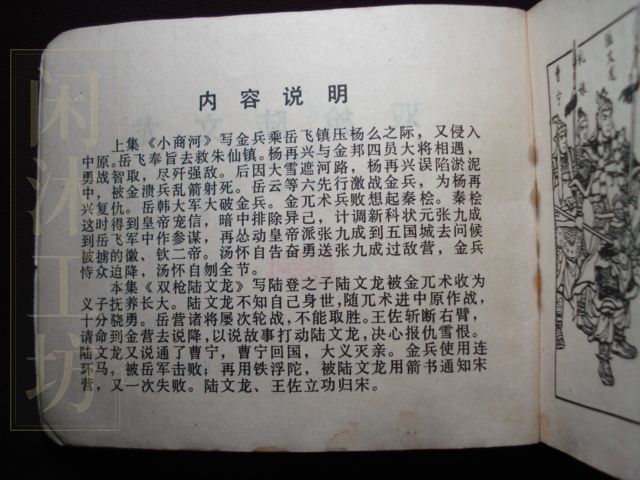 内容说明
上集《小商河》写金兵乘岳飞镇压杨么之际，又侵入
中原。岳飞奉旨去救朱仙镇。杨再兴与金邦四员大将相遇，
勇战智取，尽歼强敌。后因大雪遮河路，杨再兴误陷淤泥
中，被金溃兵乱箭射死。岳云等六先行激战金兵，为杨再
兴复仇。岳韩大军大破金兵。金兀术兵败想起秦桧。秦桧
这时得到皇帝宠信，暗中排除异己，计调新科状元张九成
到岳飞军中作参谋，再怂动皇帝派张九成到五国城去问候
被掳的徽、钦二帝。汤怀自告奋勇送张九成过敌营，金兵
恃众迫降，汤怀自刎全节。
本集《双枪陆文龙》写陆登之子陆文龙被金兀术收为
义子抚养长大。陆文龙不知自己身世，随兀术进中原作战，
十分骁勇。岳营诸将屡次轮战，不能取胜。王佐斩断右臂，
请命到金营去说降，以说故事打动陆文龙，决心报仇雪恨。
陆文龙又说通了曹宁，曹宁回国，大义灭亲。金兵使用连
环马，被岳军击败；再用铁浮陀，被陆文龙用箭书通知宋
营，又一次失败。陆文龙、王佐立功归宋。
陆文龙
乳娘
曹宁
闲沐工坊